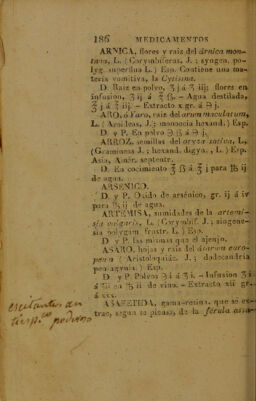 186 MEDICAMENTOS
ARNICA, flores y raiz del árnica mon-
tana, L. (Corymbíferas, J.; syngen. po-
lyg. superflua L.) Esp. Contiene una ma-
teria vomitiva, la Cytisine.
D. Raiz en polvo, ʒj á ʒiij; flores en
infusion, ʒij á ℥ß. - Agua destilada,
℥j á ℥iij. - Extracto x gr. á ℈j.
ARO, ó Yaro, raiz del arum maculatum,
L. (Aroideas, J.; monoecia hexand.) Esp.
D. y P. En polvo ℈ß á ℈j.
ARROZ, semillas del oryza sativa, L.
(Gramineas J.; hexand. digyn., L.) Esp.
Asia, Amér. septentr.
D. En cocimiento ℥ß á ℥j para ℔ij
de agua.
ARSENICO.
D. y P. Oxido de arsénico, gr. ij á iv
para ℔ij de agua.
ARTEMISA, sumidades de la artemi-
sia vulgaris, L. (Corymbíf. J.; singene-
sia polygam frustr. L.) Esp.
D. y P. las mismas que el ajenjo.
ASARO, hojas y raiz del ásarum euro-
peum (Aristoloquiác. J.; dodecandria
pentagynia) Esp.
D. y P. Polvo ℈i á ʒi. - Infusion ʒi
á ʒii en ℔ii de vino. - Extracto xii gr.
á xxx.
ASAFETIDA, goma-resina, que se ex-
trae, segun se piensa, de la férula assa-